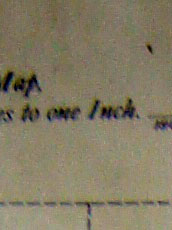 Map.
es to one Inch.